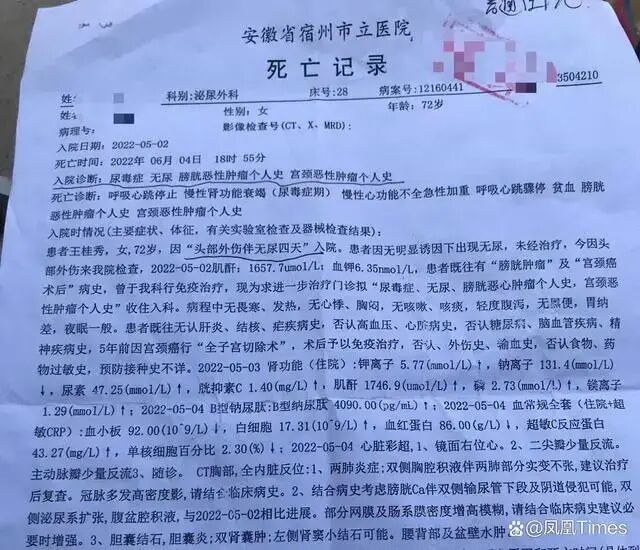 安徽省宿州市立医院
死亡记录
科别:泌尿外科 床号:28 病案号:12160441 3504210
性别:女 年龄:72岁
病理号: 影像检查号(CT、X、MRD):
入院日期:2022-05-02
死亡时间:2022年 06月 04日 18时 55分
入院诊断:尿毒症 无尿 膀胱恶性肿瘤个人史 宫颈恶性肿瘤个人史
死亡诊断:呼吸心跳停止 慢性肾功能衰竭(尿毒症期) 慢性心功能不全急性加重 呼吸心跳骤停 贫血 膀胱
恶性肿瘤个人史 宫颈恶性肿瘤个人史
入院时情况(主要症状、体征,有关实验室检查及器械检查结果):
患者王桂秀,女,72岁,因“头部外伤伴无尿四天”入院。患者因无明显诱因下出现无尿,未经治疗,今因头
部外伤来我院检查,2022-05-02肌酐:1657.7umol/L;血钾6.35nmol/L,患者既往有“膀胱肿瘤”及“宫颈癌
术后”病史,曾于我科行免疫治疗,现为求进一步治疗门诊拟“尿毒症、无尿、膀胱恶心肿瘤个人史,宫颈恶
性肿瘤个人史”收住入科。病程中无畏寒、发热,无心悸、胸闷,无咳嗽、咳痰,轻度腹泻,无黑便,胃纳
差,夜眠一般。患者既往无认肝炎、结核、疟疾病史,否认高血压、心脏病史,否认糖尿病、脑血管疾病、精
神疾病史,5年前因宫颈癌行“全子宫切除术”,术后予以免疫治疗,否认、外伤史、输血史,否认食物、药
物过敏史,预防接种史不详。2022-05-03 肾功能(住院):钾离子 5.77(mmol/L)↑,钠离子 131.4(mmol/L)
↓,尿素 47.25(mmol/L)↑,胱抑素C 1.40(mg/L)↑,肌酐 1746.9(umol/L)↑,磷 2.73(mmol/L)↑,镁离子
1.29(mmol/L)↑;2022-05-04 B型钠尿肽:B型钠尿肽 4090.00(pg/mL)↑;2022-05-04 血常规全套(住院+超
敏CRP):血小板 92.00(10^9/L)↓,白细胞 17.31(10^9/L)↑,血红蛋白 86.00(g/L)↓,超敏C反应蛋白
43.27(mg/L)↑,单核细胞百分比 2.30(%)↓;2022-05-04 心脏彩超,1、镜面右位心。2、二尖瓣少量反流。
主动脉瓣少量反流3、随诊。 CT胸部,全内脏反位:1、两肺炎症;双侧胸腔积液伴两肺部分实变不张,建议治疗
后复查。冠脉多发高密度影,请结合临床病史。2、结合病史考虑膀胱Ca伴双侧输尿管下段及阴道侵犯可能,双
侧泌尿系扩张,腹盆腔积液,与2022-05-02相比进展。部分网膜及肠系膜密度增高模糊,请结合临床病史建议必
要时增强。3、胆囊结石,胆囊炎;双肾囊肿;左侧肾窦小结石可能。腰背部及盆壁水肿
@凤凰Times